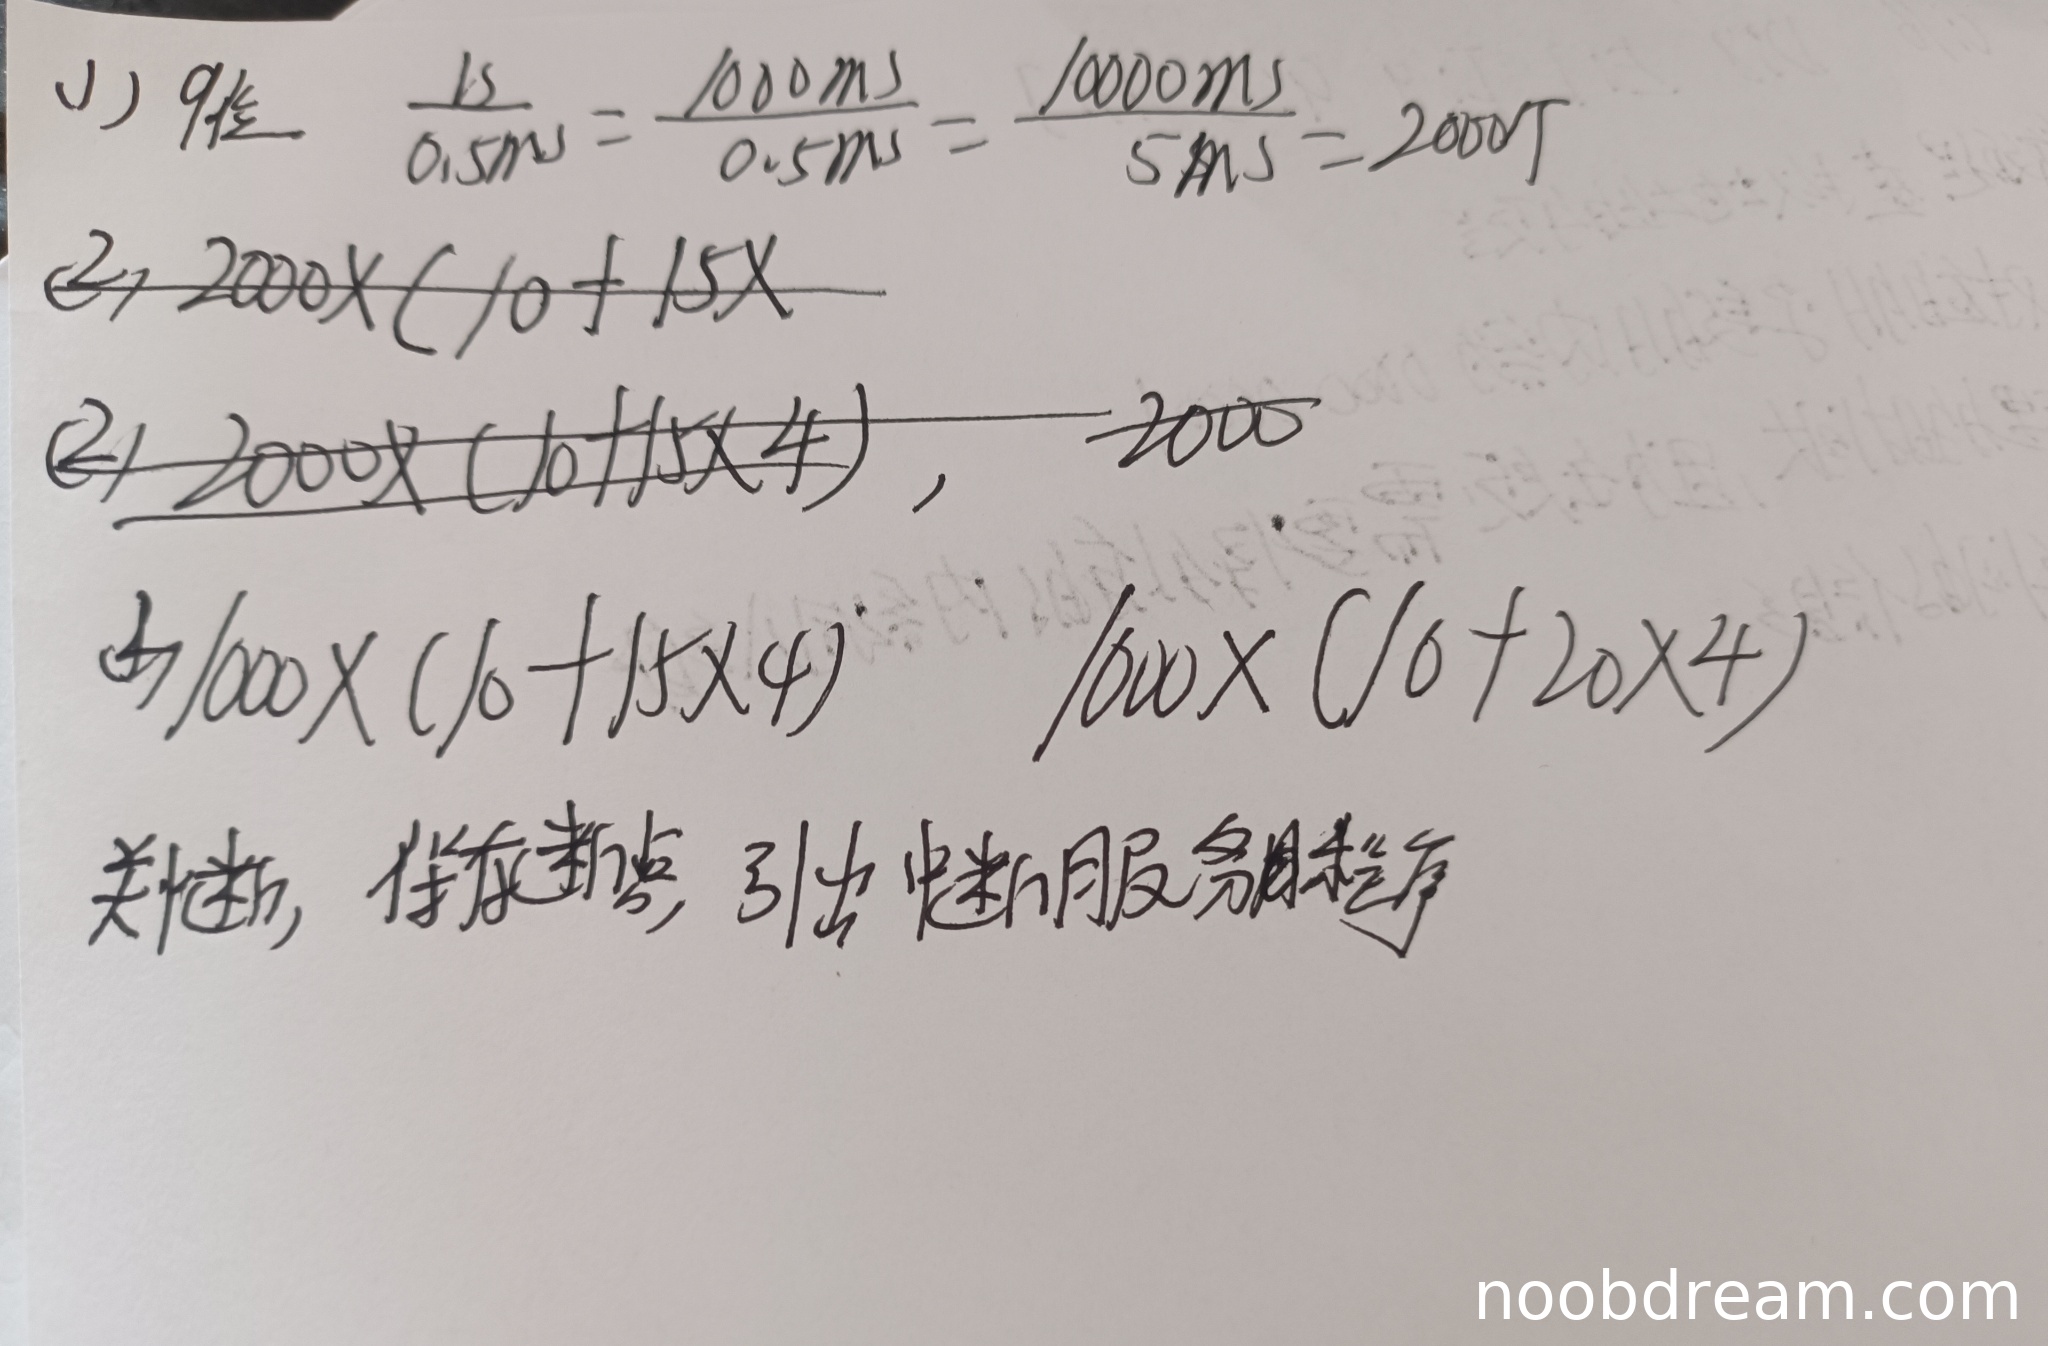 (1) 9位 1s/0.5ms = 1000ms/0.5ms = 10000ms/5ms = 2000个
(2) 2000×(10+15×
(2) 2000×(10+15×4), 2000
1000×(10+15×4) 1000×(10+20×4)
关中断, 保存断点, 引出中断服务程序
noobdream.com